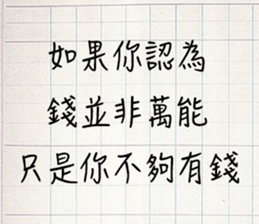 如果你認為
錢並非萬能
只是你不夠有錢